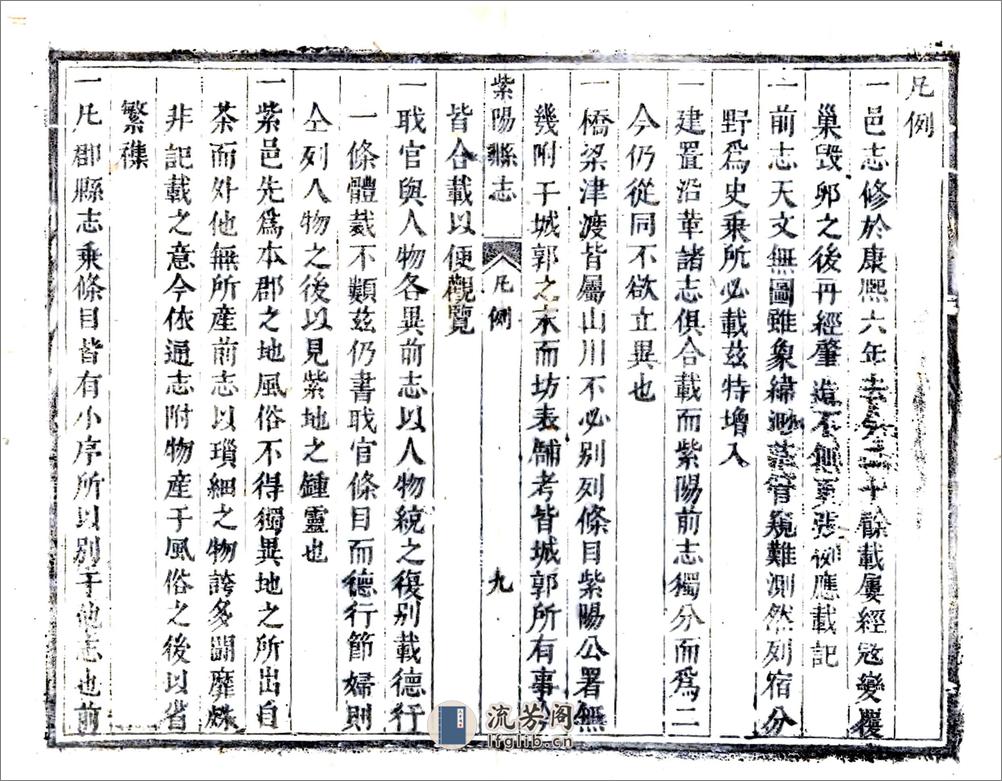 凡例
一邑志修於康熙六年去今二十餘載屢經寇變覆
巢毀卵之後再經肇造不無更張例應載記
一前志天文無圖雖象緯渺茫管窺難測然列宿分
野爲史乘所必載茲特增入
一建置沿革諸志俱合載而紫陽前志獨分而爲二
今仍從同不欲立異也
一橋梁津渡皆屬山川不必別列條目紫陽公署無
幾附于城郭之末而坊表舖考皆城郭所有事
紫陽縣志
凡例
九
皆合載以便觀覽
一職官與人物各異前志以人物統之復別載德行
一條體裁不類茲仍書職官條目而德行節婦則
仝列人物之後以見紫地之鍾靈也
一紫邑先爲本郡之地風俗不得獨異地之所出自
茶而外他無所產前志以瑣細之物誇多鬭靡殊
非記載之意今依通志附物產于風俗之後以省
繁蕪
一凡郡縣志乘條目皆有小序所以別于他志也前
流芳阁
lfglib.cn